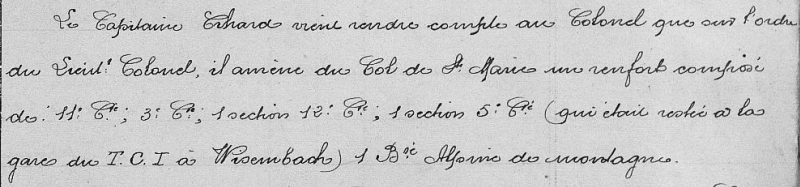 Le Capitaine Erhard vient rendre compte au Colonel que sur l'ordre
du Lieut.t Colonel, il amène du Col de Ste Marie un renfort composé
de: 11e Cie; 3e Cie, 1 section 12e Cie, 1 section 5e Cie (qui était restée à la
gare du T.C.I à Wisembach) 1 Bie Alpine de montagne.